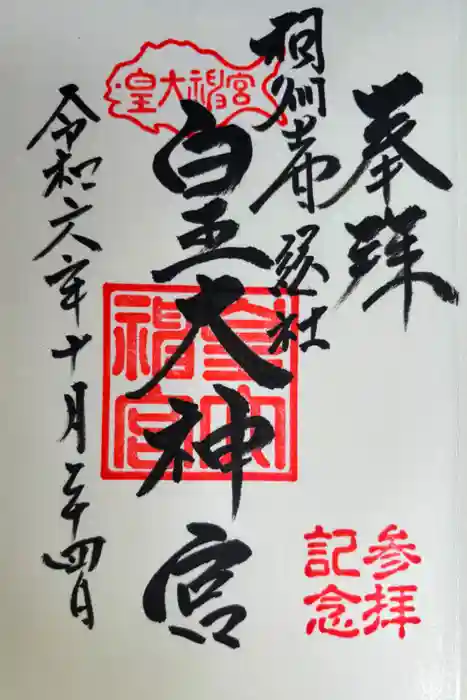 奉拝
相州
総社
皇大神宮
皇大神宮
皇大
神宮
令和六年十月二十四日
参拝
記念